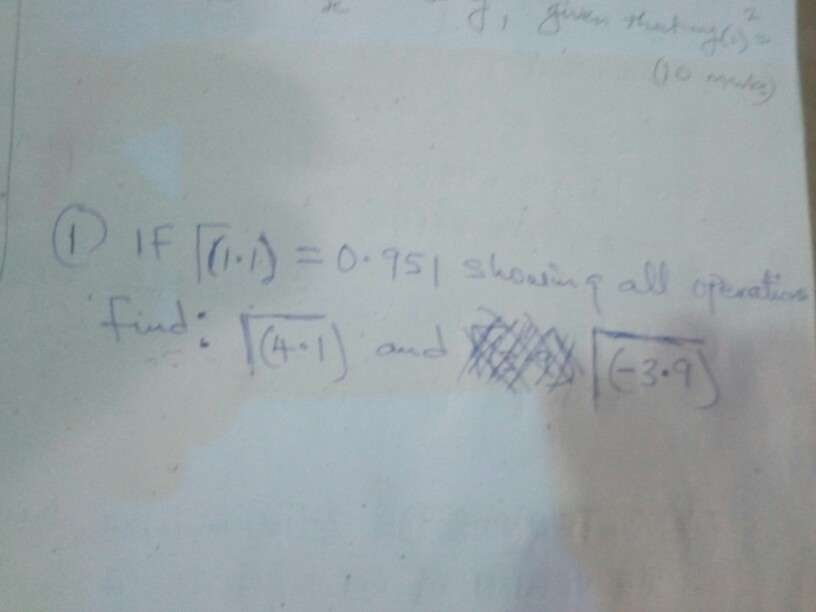 x y, given that y(1)²=
(10 marks)
① IF Γ(1.1) = 0.951 showing all operations
find: Γ(4.1) and Γ(-3.9)